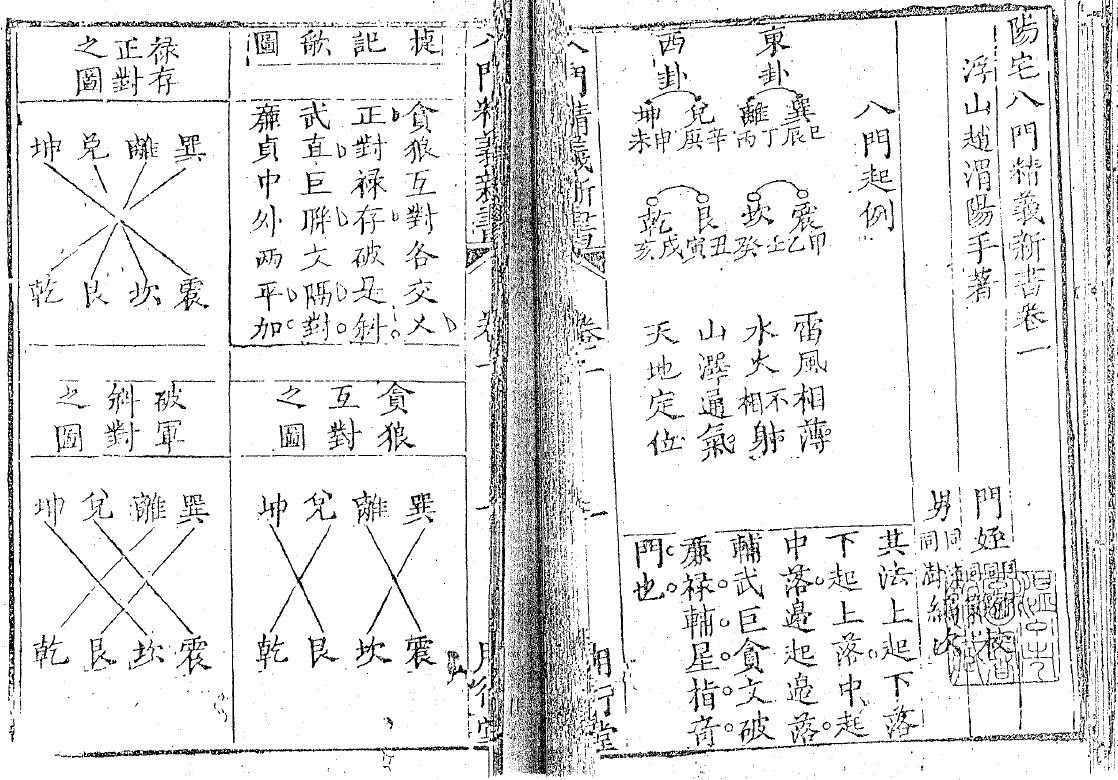 陽宅八門精義新書卷一
浮山趙渭陽手著
門姪
男
編次
八門起例
東卦
巽 離
巳辰丁丙
西卦
兌 坤
辛庚申未
震 坎
甲乙壬癸
艮 乾
丑寅戌亥
雷風相薄
水火不相射
山澤通氣
天地定位
其法上起下落
下起上落中起
中落邊起邊落
輔武巨貪文破
廉祿輔星指音
門也
八門精義新書
卷一
捷記歌圖
貪狼互對各交乂
正對祿存破是斜
武直巨聯文隅對
廉貞中外兩平加
祿存正對之圖
巽 離 兌 坤
震 坎 艮 乾
貪狼互對之圖
巽 離 兌 坤
震 坎 艮 乾
破軍斜對之圖
巽 離 兌 坤
震 坎 艮 乾